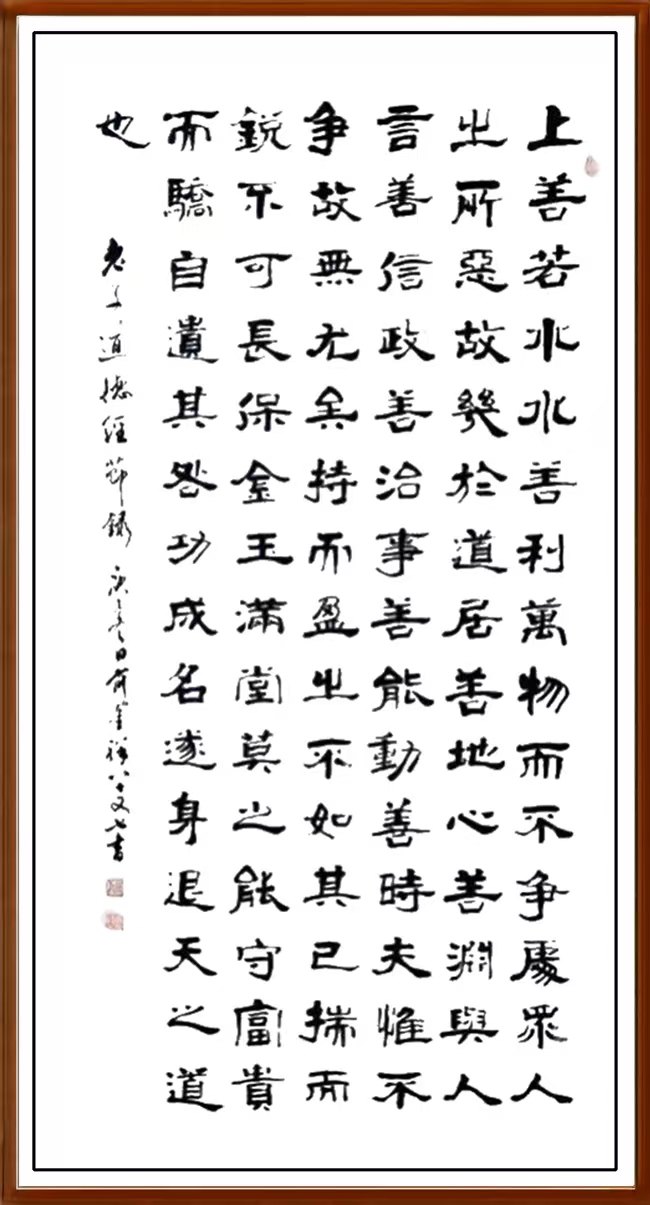 上善若水水善利萬物而不争處眾人
之所惡故幾於道居善地心善淵與人
言善信政善治事善能動善時夫惟不
争故無尤矣持而盈之不如其已揣而
鋭不可長保金玉滿堂莫之能守富貴
而驕自遺其咎功成名遂身退天之道
也
老子道德經節録 日 八十又七書